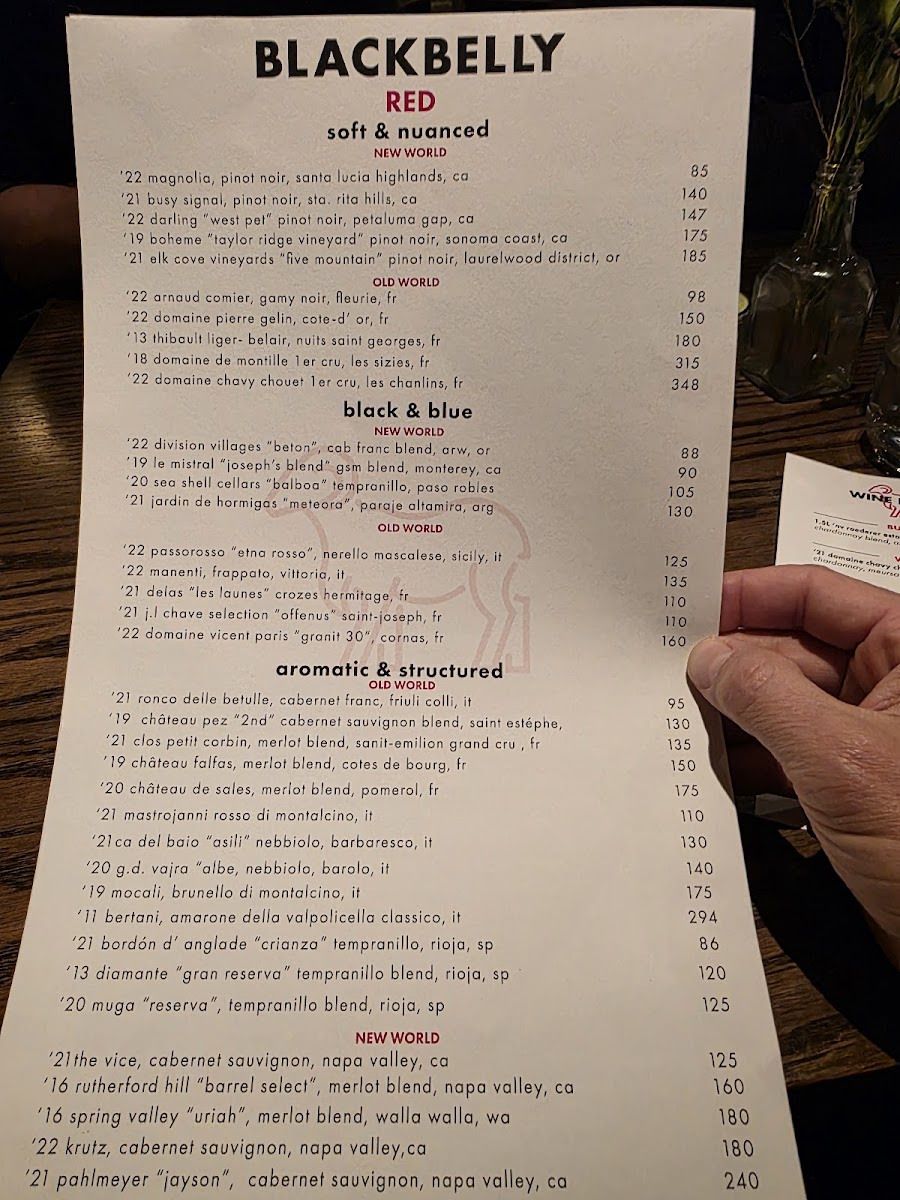 BLACKBELLY
RED
soft & nuanced
NEW WORLD
'22 magnolia, pinot noir, santa lucia highlands, ca 85
'21 busy signal, pinot noir, sta. rita hills, ca 140
'22 darling "west pet" pinot noir, petaluma gap, ca 147
'19 boheme "taylor ridge vineyard" pinot noir, sonoma coast, ca 175
'21 elk cove vineyards "five mountain" pinot noir, laurelwood district, or 185
OLD WORLD
'22 arnaud comier, gamy noir, fleurie, fr 98
'22 domaine pierre gelin, cote-d' or, fr 150
'13 thibault liger- belair, nuits saint georges, fr 180
'18 domaine de montille 1er cru, les sizies, fr 315
'22 domaine chavy chouet 1er cru, les chanlins, fr 348
black & blue
NEW WORLD
'22 division villages "beton", cab franc blend, arw, or 88
'19 le mistral "joseph's blend" gsm blend, monterey, ca 90
'20 sea shell cellars "balboa" tempranillo, paso robles 105
'21 jardin de hormigas "meteora", paraje altamira, arg 130
OLD WORLD
'22 passorosso "etna rosso", nerello mascalese, sicily, it 125
'22 manenti, frappato, vittoria, it 135
'21 delas "les launes" crozes hermitage, fr 110
'21 j.l chave selection "offenus" saint-joseph, fr 110
'22 domaine vicent paris "granit 30", cornas, fr 160
aromatic & structured
OLD WORLD
'21 ronco delle betulle, cabernet franc, friuli colli, it 95
'19 château pez "2nd" cabernet sauvignon blend, saint estéphe, 130
'21 clos petit corbin, merlot blend, sanit-emilion grand cru , fr 135
'19 château falfas, merlot blend, cotes de bourg, fr 150
'20 château de sales, merlot blend, pomerol, fr 175
'21 mastrojanni rosso di montalcino, it 110
'21ca del baio "asili" nebbiolo, barbaresco, it 130
'20 g.d. vajra "albe, nebbiolo, barolo, it 140
'19 mocali, brunello di montalcino, it 175
'11 bertani, amarone della valpolicella classico, it 294
'21 bordón d' anglade "crianza" tempranillo, rioja, sp 86
'13 diamante "gran reserva" tempranillo blend, rioja, sp 120
'20 muga "reserva", tempranillo blend, rioja, sp 125
NEW WORLD
'21the vice, cabernet sauvignon, napa valley, ca 125
'16 rutherford hill "barrel select", merlot blend, napa valley, ca 160
'16 spring valley "uriah", merlot blend, walla walla, wa 180
'22 krutz, cabernet sauvignon, napa valley,ca 180
'21 pahlmeyer "jayson", cabernet sauvignon, napa valley, ca 240
WINE
1.5L 'nv roederer
chardonnay blend,
'21 domaine chavy
chardonnay,